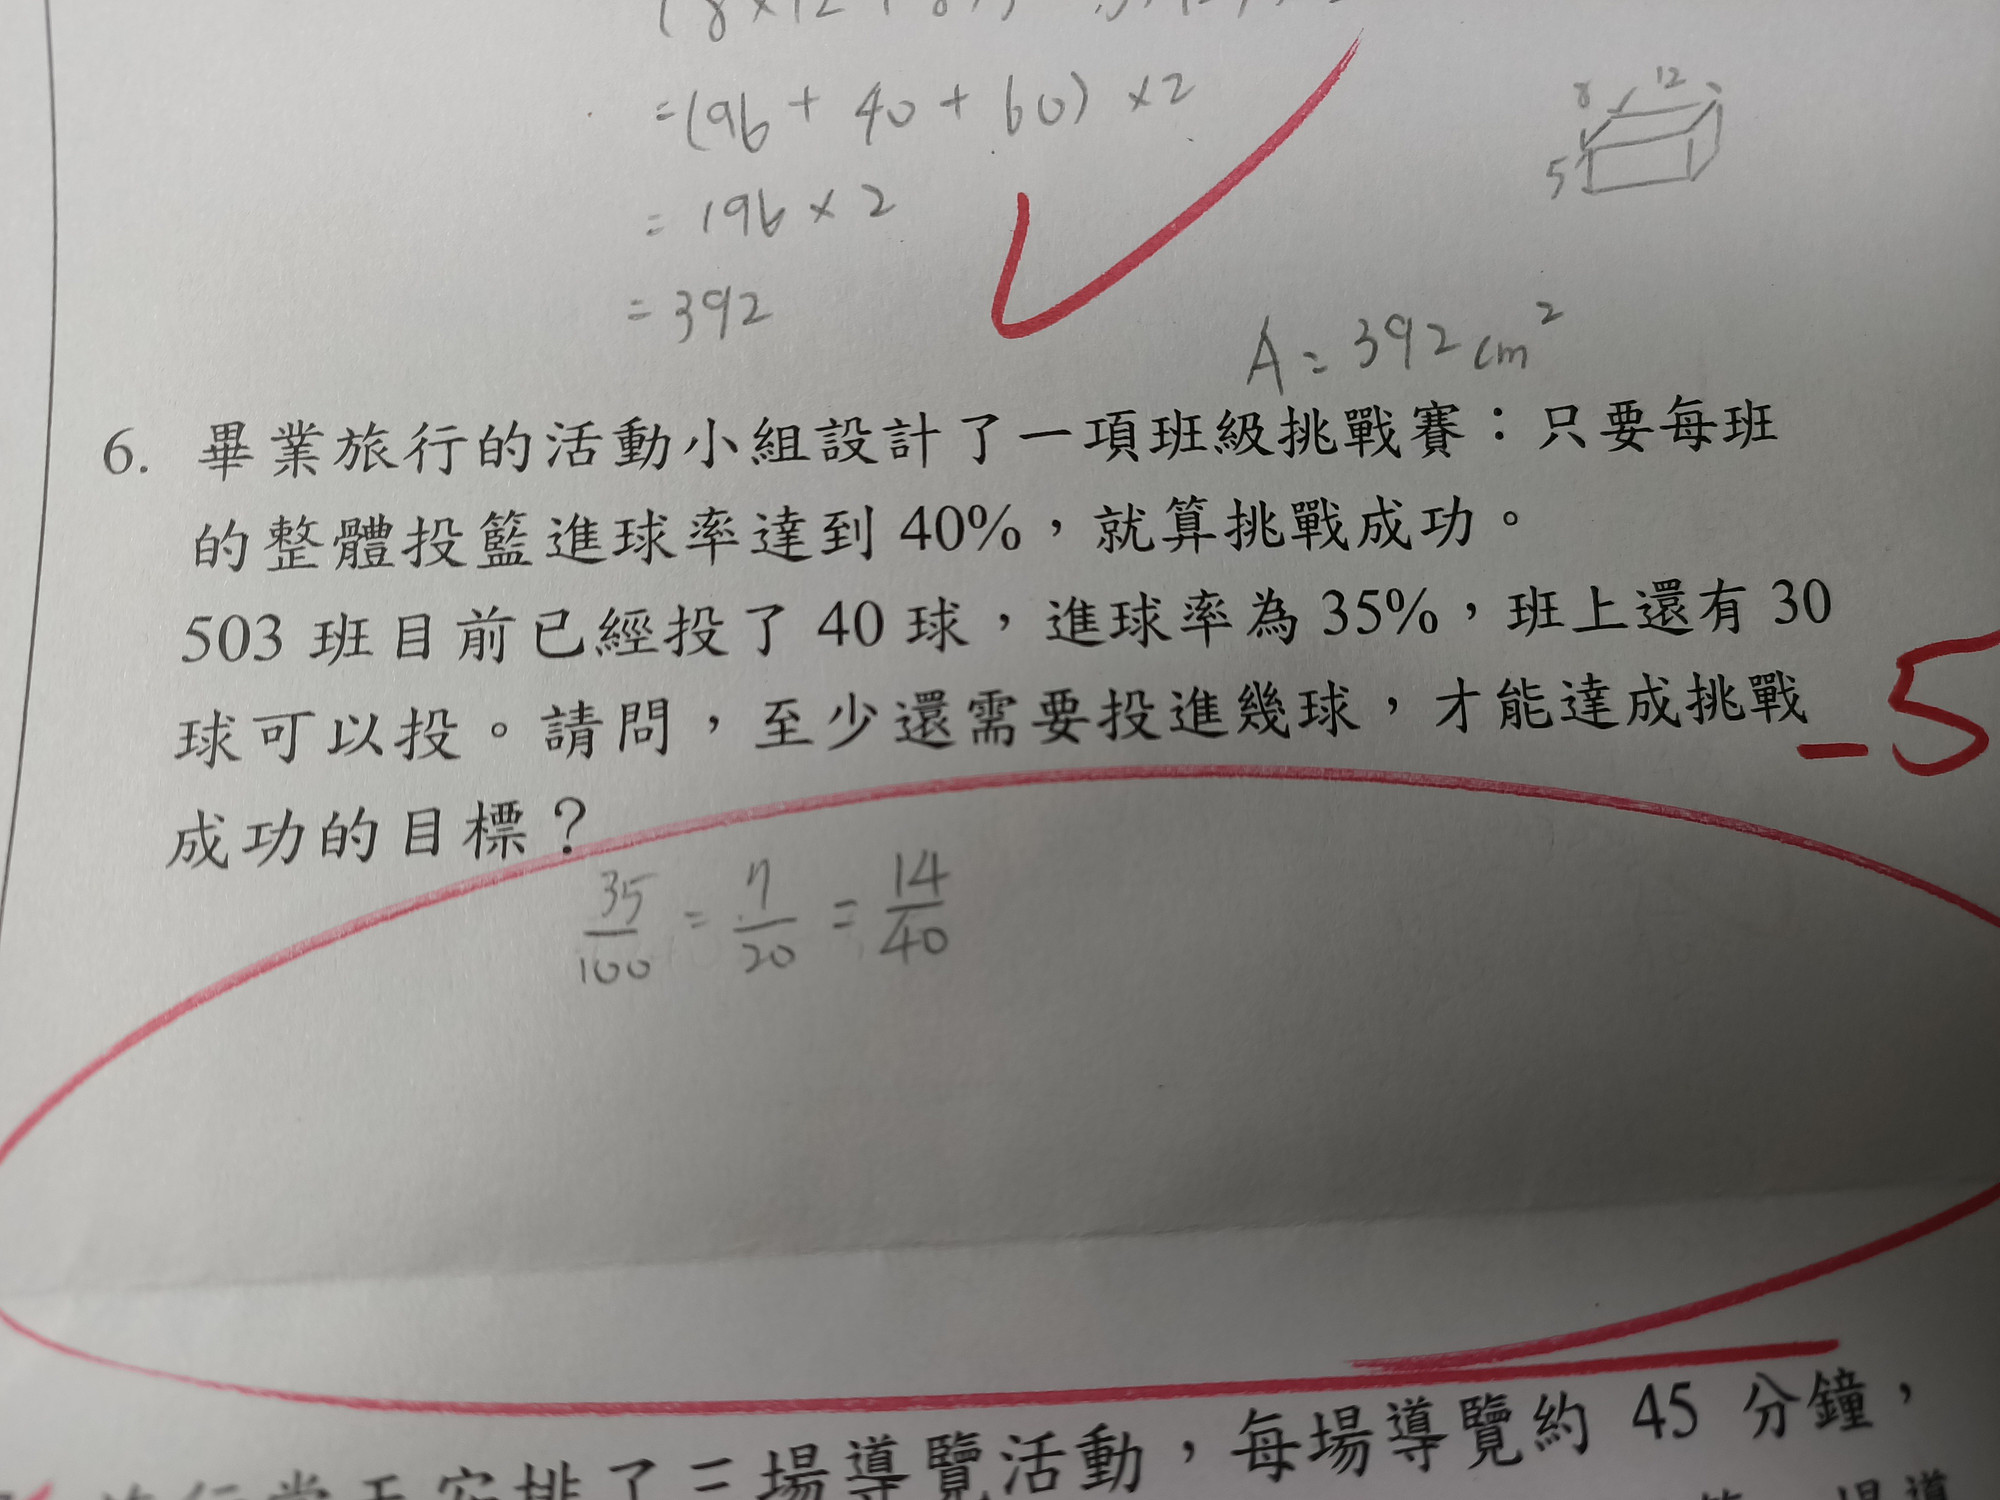 =(96 + 40 + 60) ×2
= 196 × 2
= 392
8 12
5
A = 392 cm²
6. 畢業旅行的活動小組設計了一項班級挑戰賽：只要每班
的整體投籃進球率達到 40%，就算挑戰成功。
503 班目前已經投了 40 球，進球率為 35%，班上還有 30
球可以投。請問，至少還需要投進幾球，才能達成挑戰
-5
成功的目標？
35/100 = 7/20 = 14/40
排了三場導覽活動，每場導覽約 45 分鐘，
場導